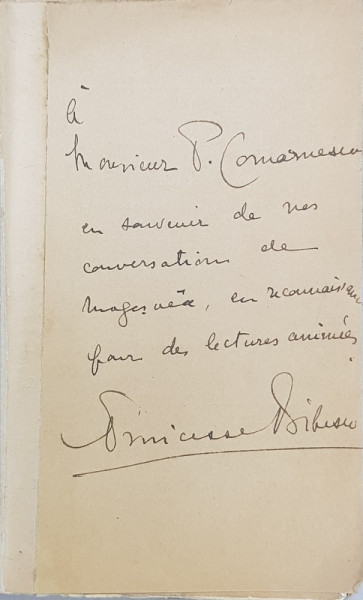 à
Monsieur P. Comarnescu
en souvenir de nos
conversations de
Mogoșoëa, en reconnaissance
pour des lectures animées.
Princesse Bibesco